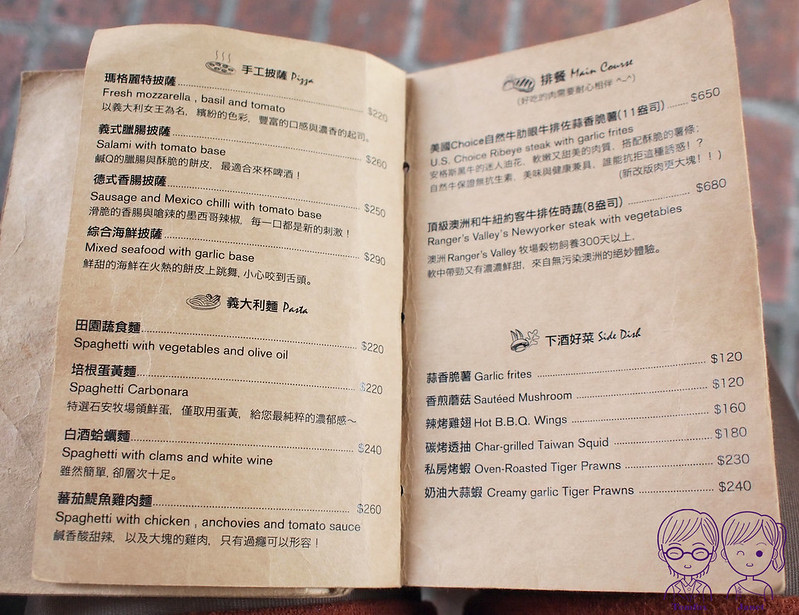 手工披薩 Pizza
瑪格麗特披薩 $220
Fresh mozzarella , basil and tomato
以義大利女王為名，繽紛的色彩，豐富的口感與濃香的起司。
義式臘腸披薩 $260
Salami with tomato base
鹹Q的臘腸與酥脆的餅皮，最適合來杯啤酒！
德式香腸披薩 $250
Sausage and Mexico chilli with tomato base
滑脆的香腸與嗆辣的墨西哥辣椒，每一口都是新的刺激！
綜合海鮮披薩 $290
Mixed seafood with garlic base
鮮甜的海鮮在火熱的餅皮上跳舞, 小心咬到舌頭。
義大利麵 Pasta
田園蔬食麵 $220
Spaghetti with vegetables and olive oil
培根蛋黃麵 $220
Spaghetti Carbonara
特選石安牧場領鮮蛋，僅取用蛋黃，給您最純粹的濃郁感～
白酒蛤蠣麵 $240
Spaghetti with clams and white wine
雖然簡單, 卻層次十足。
蕃茄鯷魚雞肉麵 $260
Spaghetti with chicken , anchovies and tomato sauce
鹹香酸甜辣，以及大塊的雞肉，只有過癮可以形容！
排餐 Main Course
(好吃的肉需要耐心相伴 ^~^)
美國Choice自然牛肋眼牛排佐蒜香脆薯(11盎司) $650
U.S. Choice Ribeye steak with garlic frites
安格斯黑牛的迷人油花，軟嫩又甜美的肉質，搭配酥脆的薯條；
自然牛保證無抗生素，美味與健康兼具，誰能抗拒這種誘惑！？
(新改版肉更大塊！！)
頂級澳洲和牛紐約客牛排佐時蔬(8盎司) $680
Ranger's Valley's Newyorker steak with vegetables
澳洲 Ranger's Valley 牧場穀物飼養300天以上，
軟中帶勁又有濃濃鮮甜，來自無污染澳洲的絕妙體驗。
下酒好菜 Side Dish
蒜香脆薯 Garlic frites $120
香煎蘑菇 Sautéed Mushroom $120
辣烤雞翅 Hot B.B.Q. Wings $160
碳烤透抽 Char-grilled Taiwan Squid $180
私房烤蝦 Oven-Roasted Tiger Prawns $230
奶油大蒜蝦 Creamy garlic Tiger Prawns $240